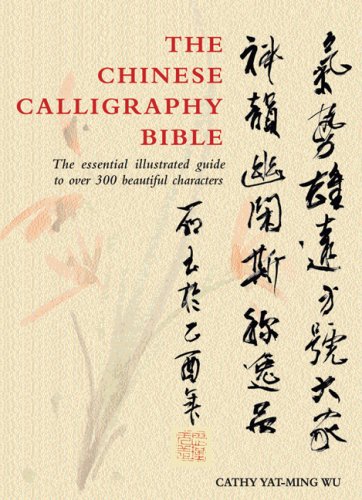 THE
CHINESE
CALLIGRAPHY
BIBLE
The essential illustrated guide
to over 300 beautiful characters
氣勢雄遠方號大家
神韻幽閑斯稱逸品
玉於乙酉年
CATHY YAT-MING WU